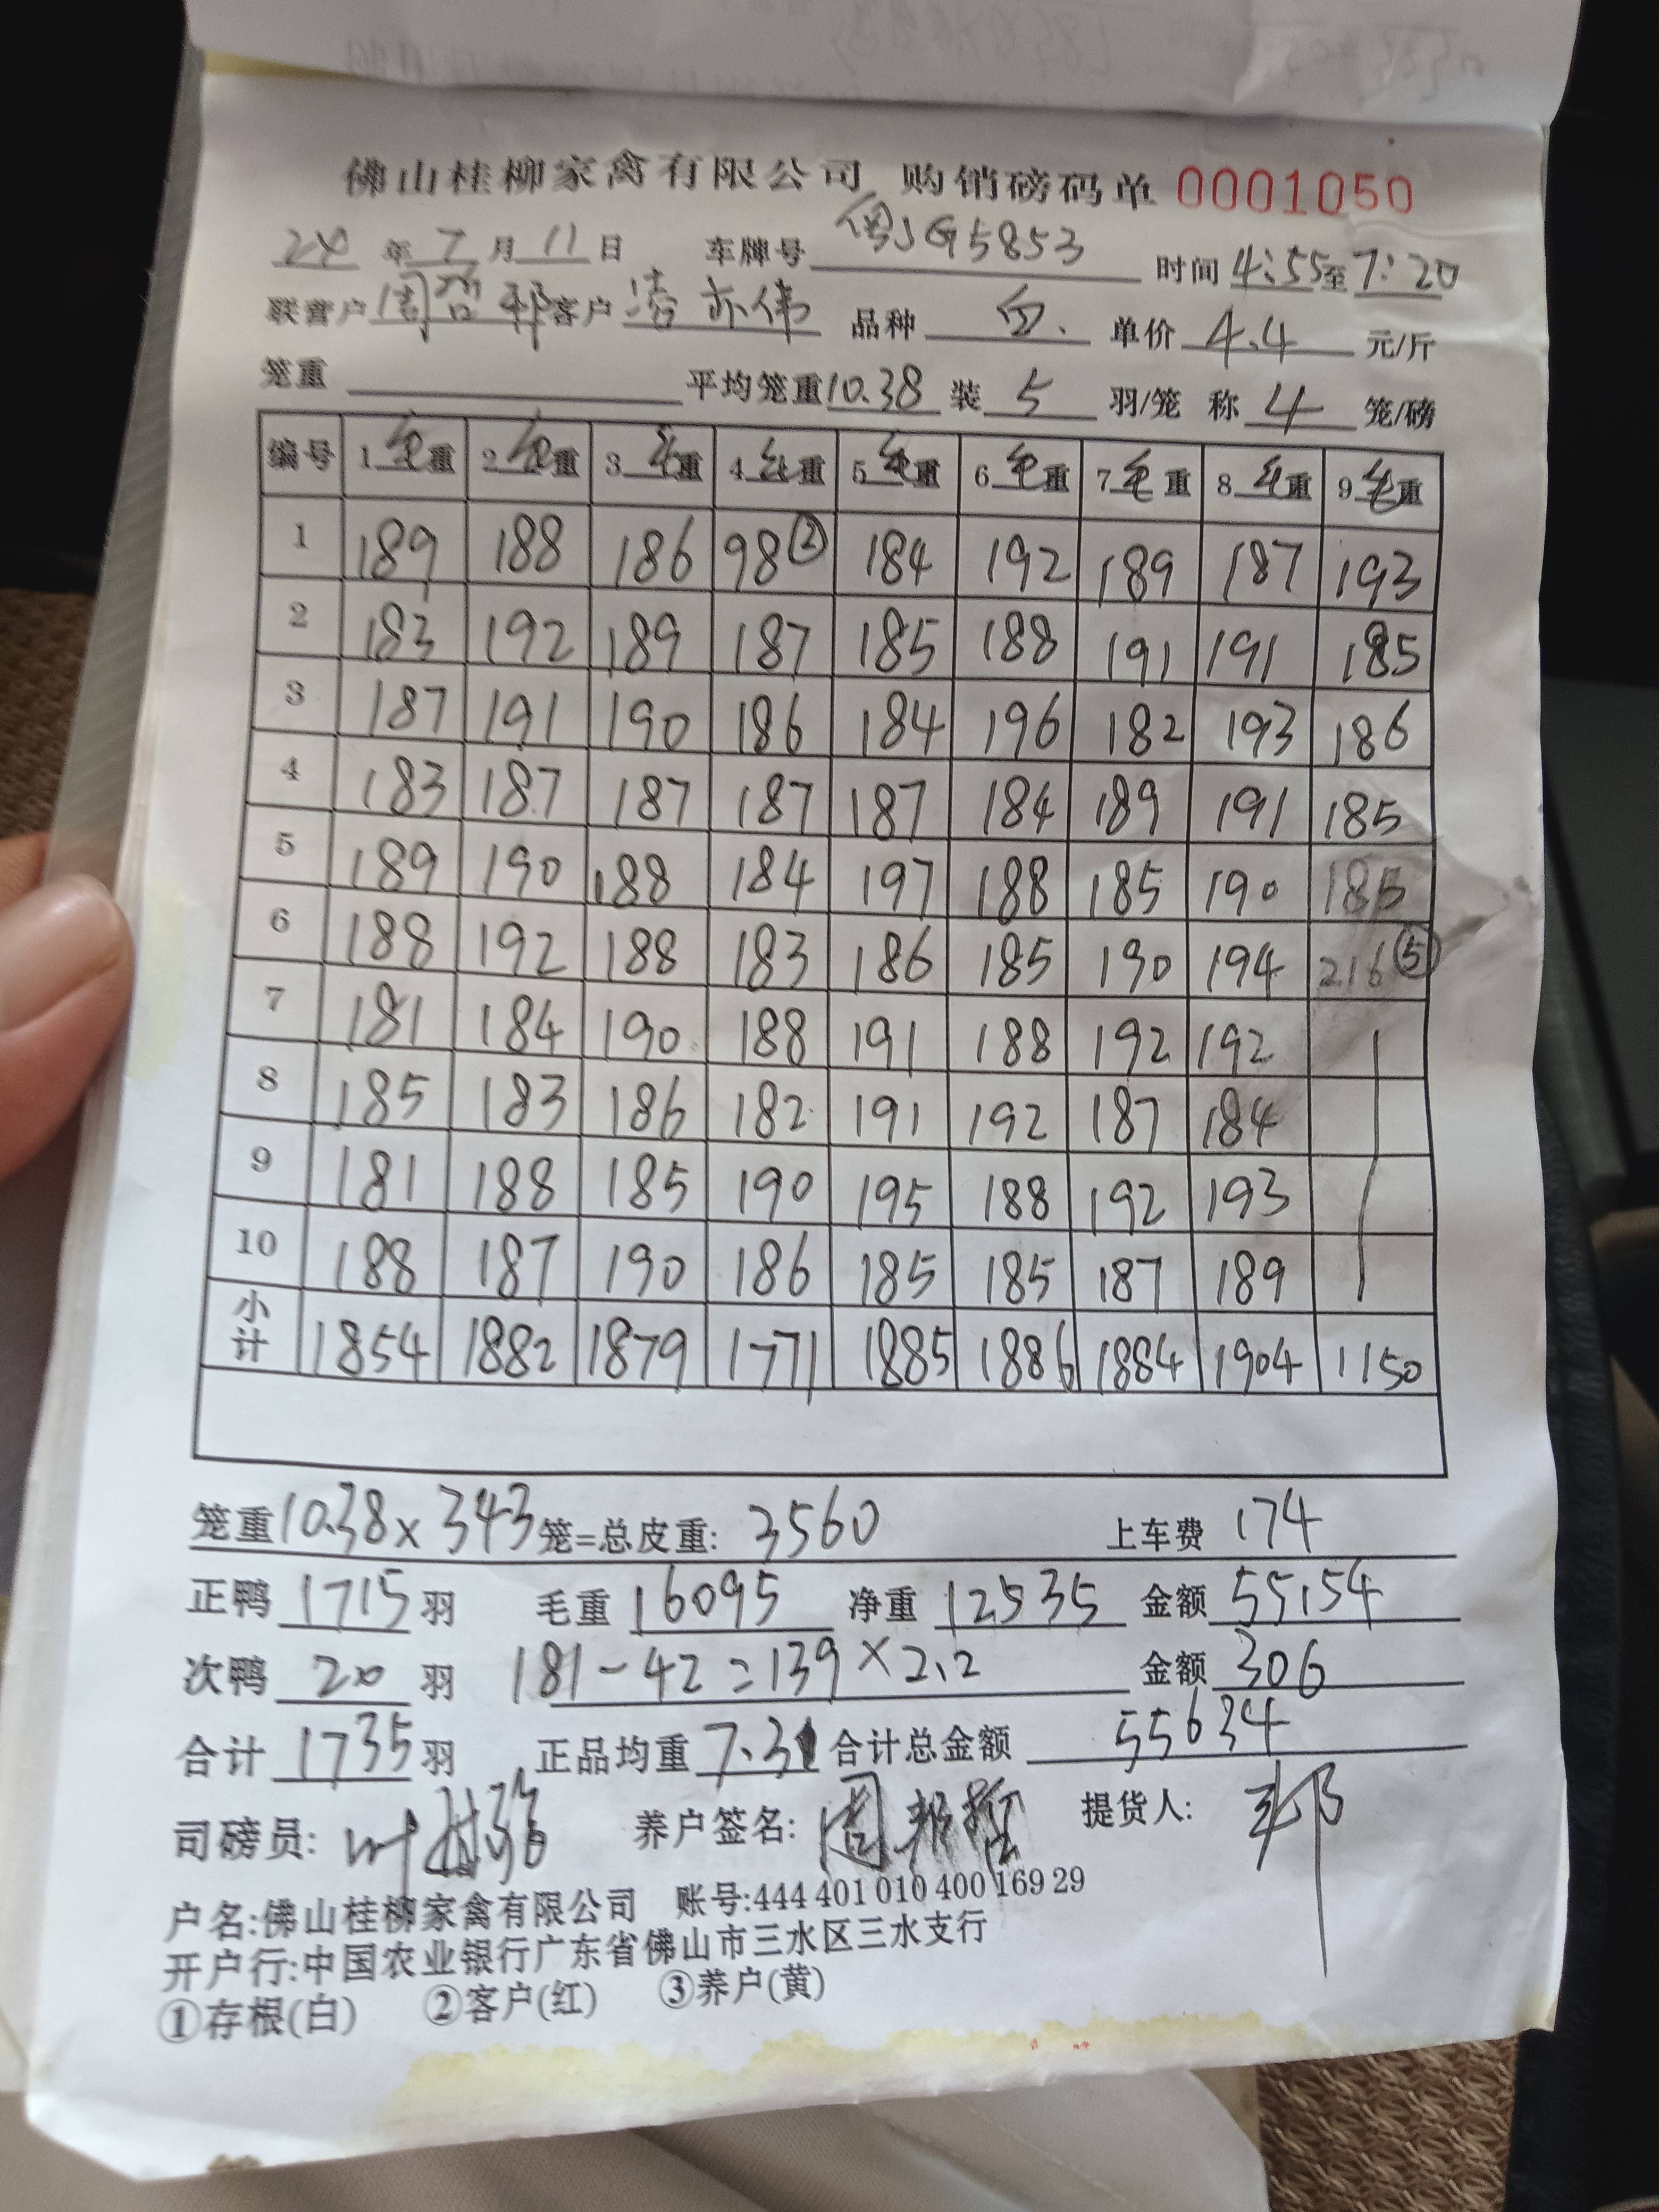 佛山桂柳家禽有限公司 购销磅码单 0001050
24 年 7 月 11 日 车牌号 粤JG5853 时间 4:55 至 7:20
联营户 周 客户 亦伟 品种 白. 单价 4.4 元/斤
笼重 平均笼重 10.38 装 5 羽/笼 称 4 笼/磅
编号 1 毛重 2 毛重 3 毛重 4 毛重 5 毛重 6 毛重 7 毛重 8 毛重 9 毛重
1 189 188 186 98② 184 192 189 187 193
2 183 192 189 187 185 188 191 191 185
3 187 191 190 186 184 196 182 193 186
4 183 187 187 187 187 184 189 191 185
5 189 190 188 184 197 188 185 190 185
6 188 192 188 183 186 185 190 194 216⑤
7 181 184 190 188 191 188 192 192
8 185 183 186 182 191 192 187 184
9 181 188 185 190 195 188 192 193
10 188 187 190 186 185 185 187 189
小计 1854 1882 1879 1771 1885 1886 1884 1904 1150
笼重 10.38 x 343 笼=总皮重: 3560 上车费 174
正鸭 1715 羽 毛重 16095 净重 12535 金额 55154
次鸭 20 羽 181-42=139×2.2 金额 306
合计 1735 羽 正品均重 7.31 合计总金额 55634
司磅员: 叶 养户签名: 周 提货人:
户名:佛山桂柳家禽有限公司 账号:444 401 010 400 169 29
开户行:中国农业银行广东省佛山市三水区三水支行
①存根(白) ②客户(红) ③养户(黄)